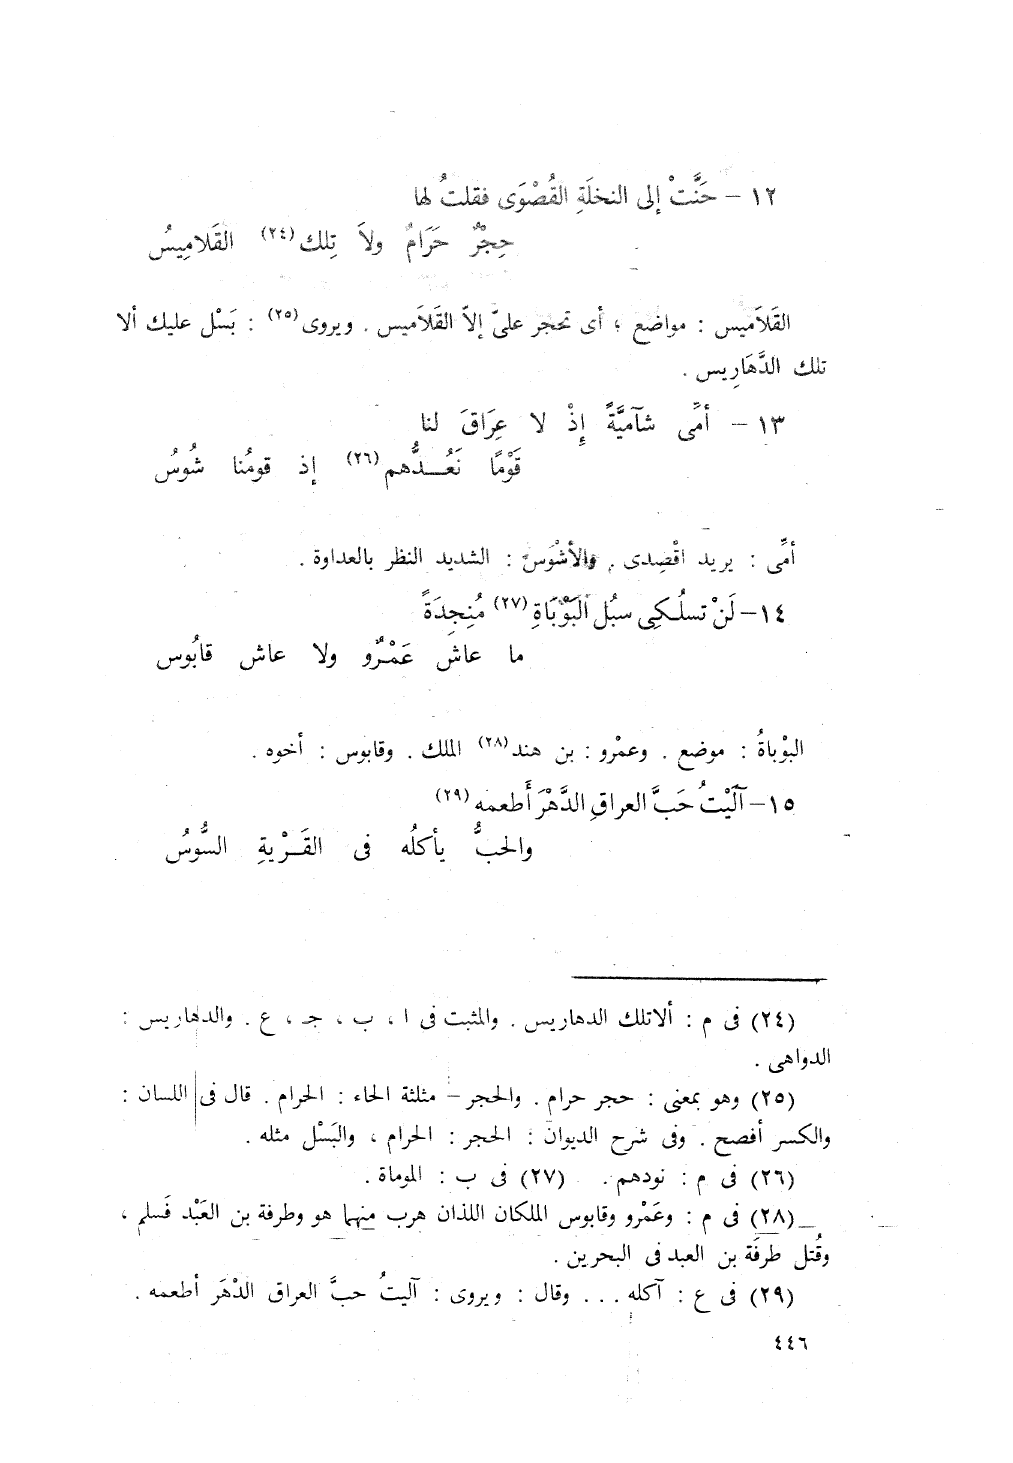 ١٢ – حَنَّتْ إلى النخلَةِ القُصْوَى فقلتُ لها
حِجْرٌ حَرَامٌ ولاَ تِلك(٢٤) القَلامِيسُ
القَلاَميس : مواضع ؛ أى تحجر علىّ إلاّ القَلاَميس . ويروى(٢٥) : بَسْل عليك ألا
تلك الدَّهَارِيس .
١٣ – أمِّى شآميَّةً إِذْ لا عِرَاقَ لنا
قَوْمًا نَعُـــدُّهم(٢٦) إذ قومُنا شُوسُ
أمِّى : يريد اقْصِدى . والأشْوَس : الشديد النظر بالعداوة .
١٤ – لَنْ تسلُكِى سبُل البَوْبَاةِ(٢٧) مُنجِدَةً
ما عاش عَمْرٌو ولا عاش قابُوس
البوْباةُ : موضع . وعمْرو : بن هند(٢٨) الملك . وقابوس : أخوه .
١٥ – آلَيْتُ حَبَّ العراقِ الدَّهْرَ أَطعمه(٢٩)
والحبُّ يأكلُه فى القَـــرْيةِ السُّوسُ
(٢٤) فى م : ألاتلك الدهاريس . والمثبت فى ا ، ب ، جـ ، ع . والدهاريس :
الدواهى .
(٢٥) وهو بمعنى : حجر حرام . والحجر – مثلثة الحاء : الحرام . قال فى اللسان :
والكسر أفصح . وفى شرح الديوان : الحجر : الحرام ، والبَسْل مثله .
(٢٦) فى م : نودهم . (٢٧) فى ب : الموماة .
(٢٨) فى م : وعَمْرو وقابوس الملكان اللذان هرب منهما هو وطرفة بن العَبْد فَسلم ،
وقُتل طرفَة بن العبد فى البحرين .
(٢٩) فى ع : آكله . . . وقال : ويروى : آليتُ حبَّ العراق الدْهَر أطعمه .
٤٤٦